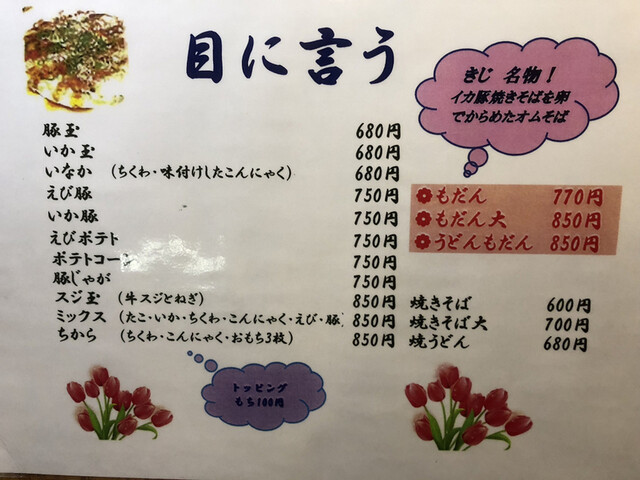 目に言う
きじ 名物！
イカ豚焼きそばを卵
でからめたオムそば
豚玉 680円
いか玉 680円
いなか (ちくわ・味付けしたこんにゃく) 680円
えび豚 750円
いか豚 750円
えびポテト 750円
ポテトコーン 750円
豚じゃが 750円
スジ玉 (牛スジとねぎ) 850円
ミックス (たこ・いか・ちくわ・こんにゃく・えび・豚) 850円
ちから (ちくわ・こんにゃく・おもち3枚) 850円
もだん 770円
もだん大 850円
うどんもだん 850円
焼きそば 600円
焼きそば大 700円
焼うどん 680円
トッピング
もち100円